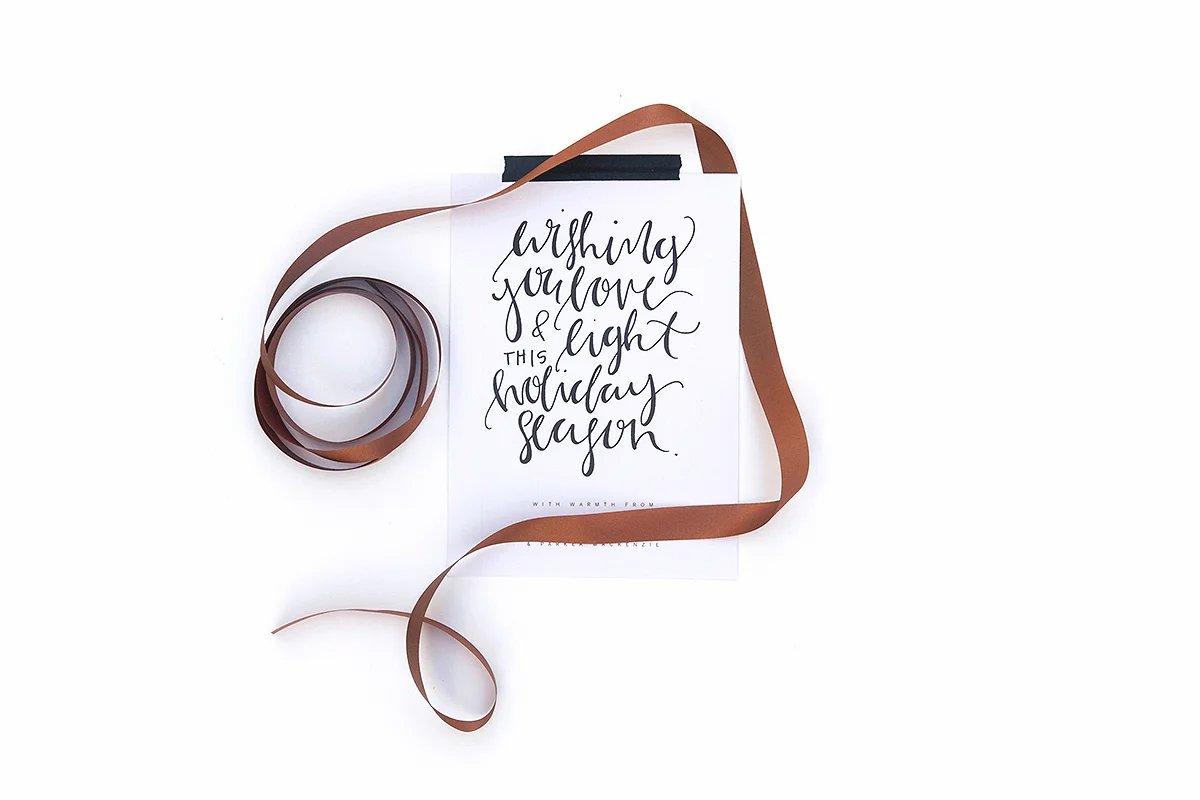 wishing
you love
& light
THIS
holiday
season.
WITH WARMTH FROM
& PARKER MACKENZIE